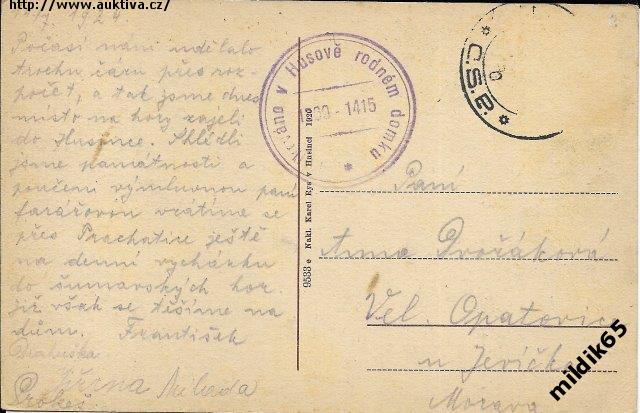 http://www.auktiva.cz/
1924
Počasí nám udělalo
trochu čáru přes roz-
počet, a tak jsme dnes
místo na hory zajeli
do Husince. Shlédli
jsme památnosti a
poučeni výmluvnou paní
farářovou vrátíme se
přes Prachatice ještě
na denní vycházku
do šumavských hor
již však se těšíme na
dům. František
Božena Milada
Prokeš.
v Husově rodném domku
69 - 1415
9533 e Nakl. Karel Eys v Husinci 1920
Č.S.P.
Paní
Anna Dvořáková
Vel. Opatovice
u Jevíčka
Morava
mildik65